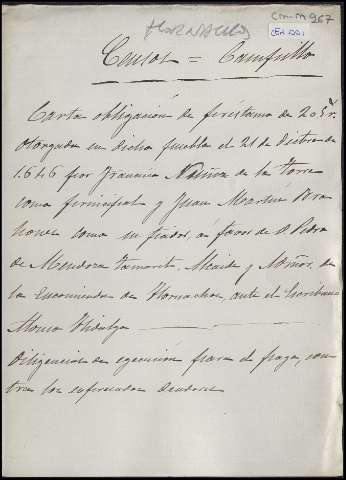 HORNACHOS
Censos = Campillo
Carta obligación de préstamo de
otorgada en dicha puebla el 21 de Dicbre de
1.646 por Francisco Nuñez de la Torre
como principal y Juan Martin
como su fiador, á favor de D. Pedro
de Mendoza Alcaide y Admor. de
la Encomienda de Hornachos, ante el Escribano
Alonso Hidalgo
Diligencias de egecución para el pago, con
tra los espresados deudores